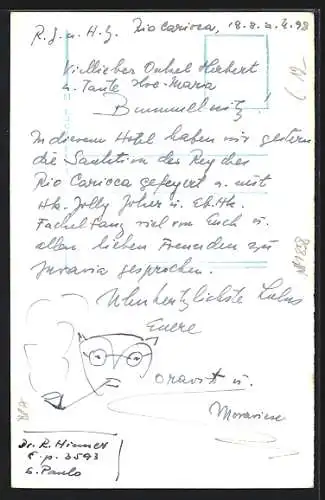 R. J. u. H. G. Rio Carioca, 18. a. U. 98
Viellieber Onkel Herbert
u. Tante Ilse-Maria
Bummelwitz!
In diesem Hotel haben wir gestern
die Sanktion des Reyches
Rio Carioca gefeyert u. mit
Hk. Jolly Joker u. Ek. Hk.
Fackelsang viel von Euch u.
allen lieben Freunden zu
Juvavia gesprochen.
Uhuhertzlichste Lulus
Euere
Oravit u.
Moraviese
Dr. R. Himmel
C. p. 3593
S. Paulo